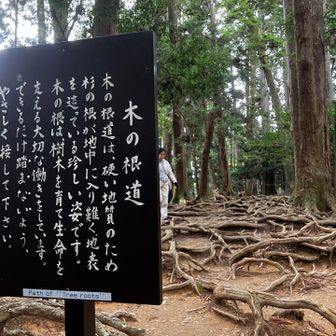 木の根道
木の根道は、硬い地質のため
杉の根が地中に入り難く地表
を這っている珍しい姿です。
木の根は、樹木を育て生命を
支える大切な働きをしています。
できるだけ踏まないよう、
やさしく接して下さい。
Path of "Tree roots"